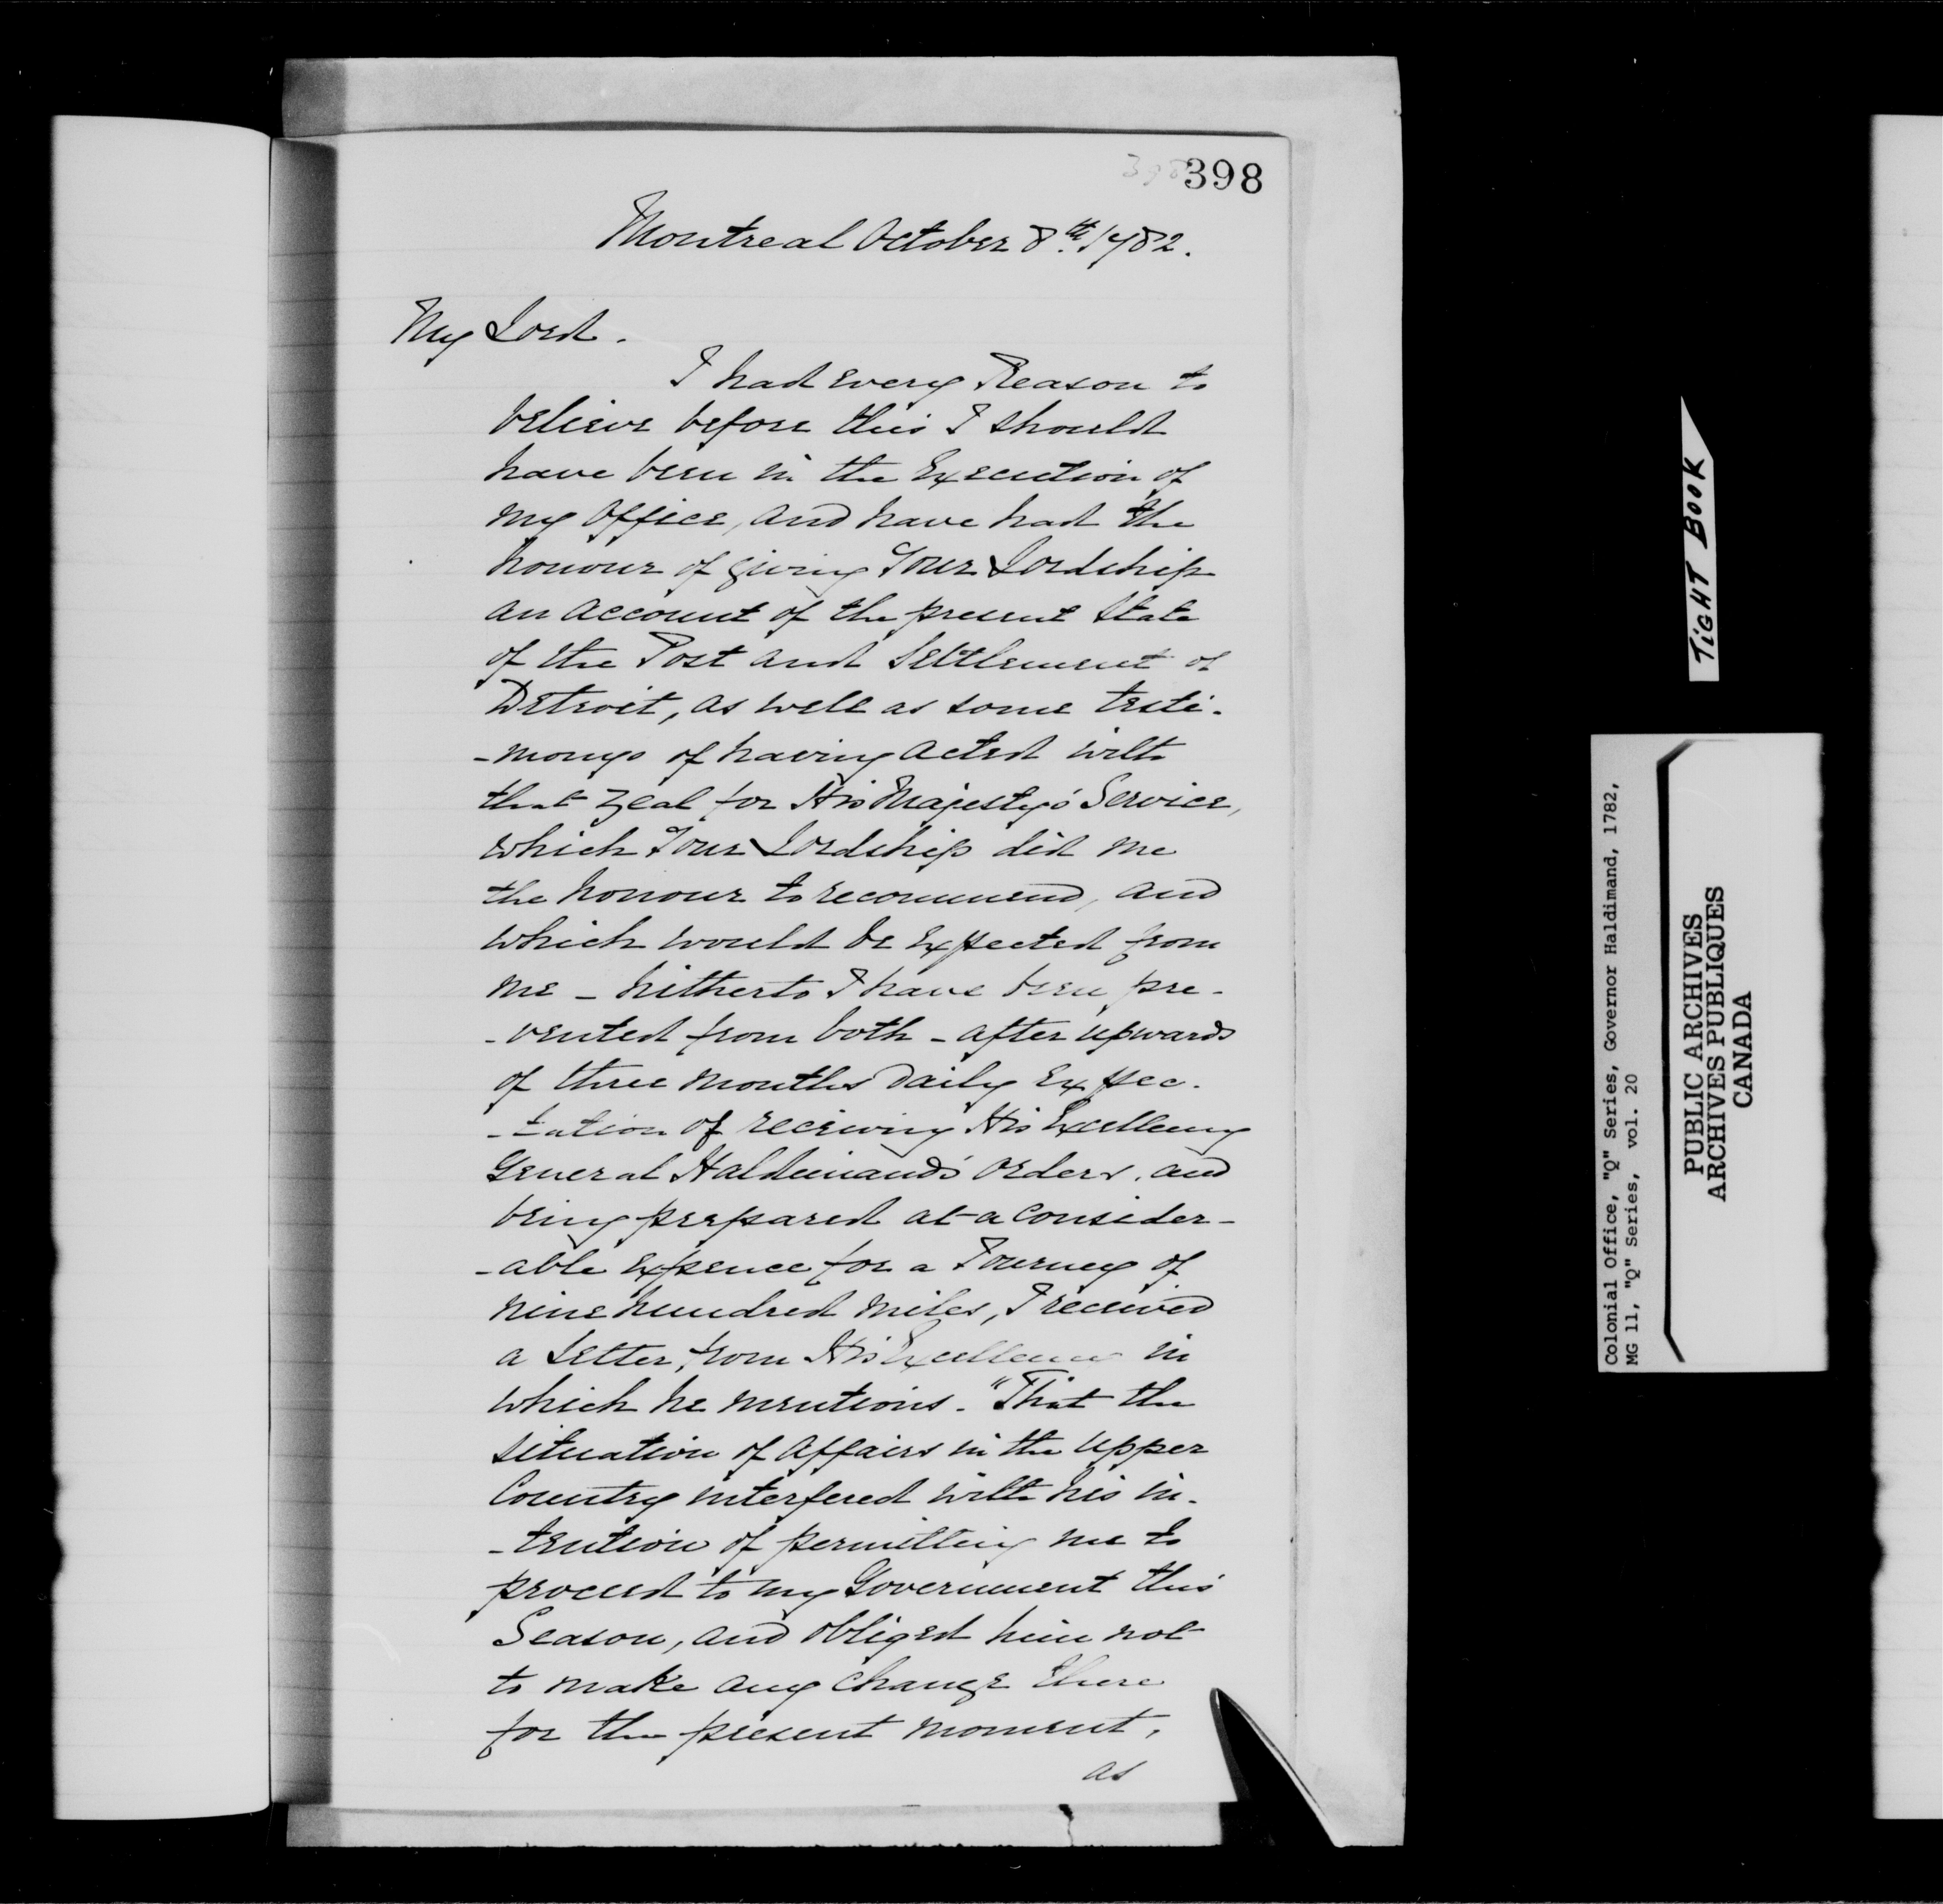 398
Montreal October 8th. 1782.
My Lord.
I had every Reason to
believe before this I should
have been in the Execution of
my Office, and have had the
honour of giving Your Lordship
an account of the present State
of the Post and Settlement of
Detroit, as well as some testi-
-monys of having acted with
that zeal for His Majesty's Service,
which Your Lordship did me
the honour to recommend, and
which would be Expected from
me - hitherto I have been pre-
-vented from both - after upwards
of three months daily Expec-
-tation of receiving His Excellency
General Haldimand's orders, and
being prepared at a consider-
-able Expence for a Journey of
nine hundred miles, I received
a Letter from His Excellency in
which he mentions. "That the
situation of Affairs in the upper
Country interfered with his in-
-tention of permitting me to
proceed to my Government this
Season, and obliged him not
to make any change there
for the present moment,
as
TIGHT BOOK
Colonial Office, "Q" Series, Governor Haldimand, 1782,
MG 11, "Q" Series, vol. 20
PUBLIC ARCHIVES
ARCHIVES PUBLIQUES
CANADA